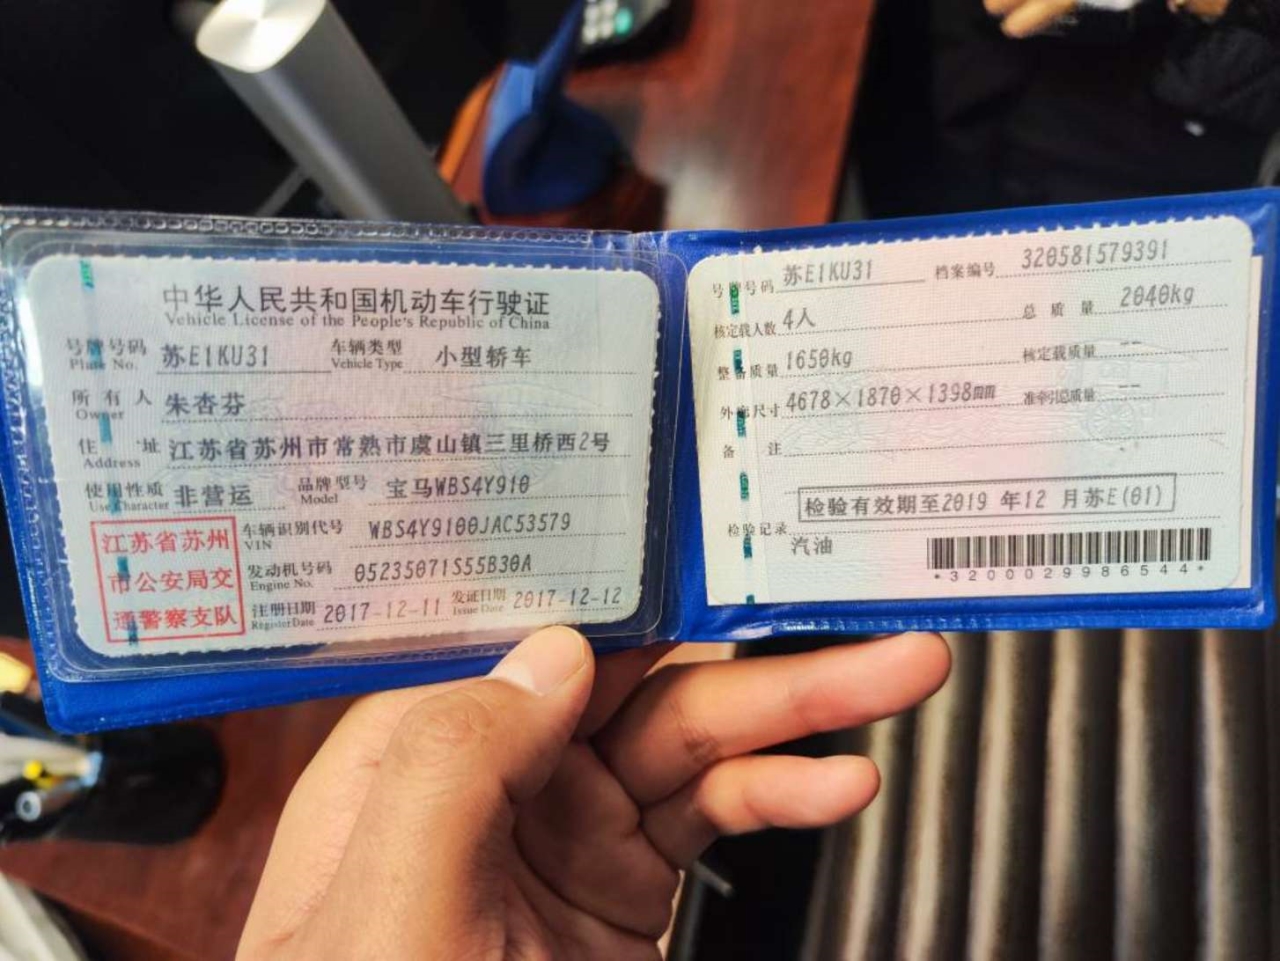 中华人民共和国机动车行驶证
Vehicle License of the People's Republic of China
号牌号码 苏E1KU31 车辆类型 小型轿车
Plate No. Vehicle Type
所有人 朱杏芬
Owner
住址 江苏省苏州市常熟市虞山镇三里桥西2号
Address
使用性质 非营运 品牌型号 宝马WBS4Y910
Use Character Model
车辆识别代号 WBS4Y9100JAC53579
VIN
发动机号码 05235071S55B30A
Engine No.
注册日期 2017-12-11 发证日期 2017-12-12
Register Date Issue Date
江苏省苏州
市公安局交
通警察支队
号牌号码 苏E1KU31 档案编号 320581579391
核定载人数 4人 总质量 2040kg
整备质量 1650kg 核定载质量 --
外廓尺寸 4678×1870×1398mm 准牵引总质量 --
备注
检验有效期至2019 年12 月苏E(01)
检验记录
汽油
*3200029986544*